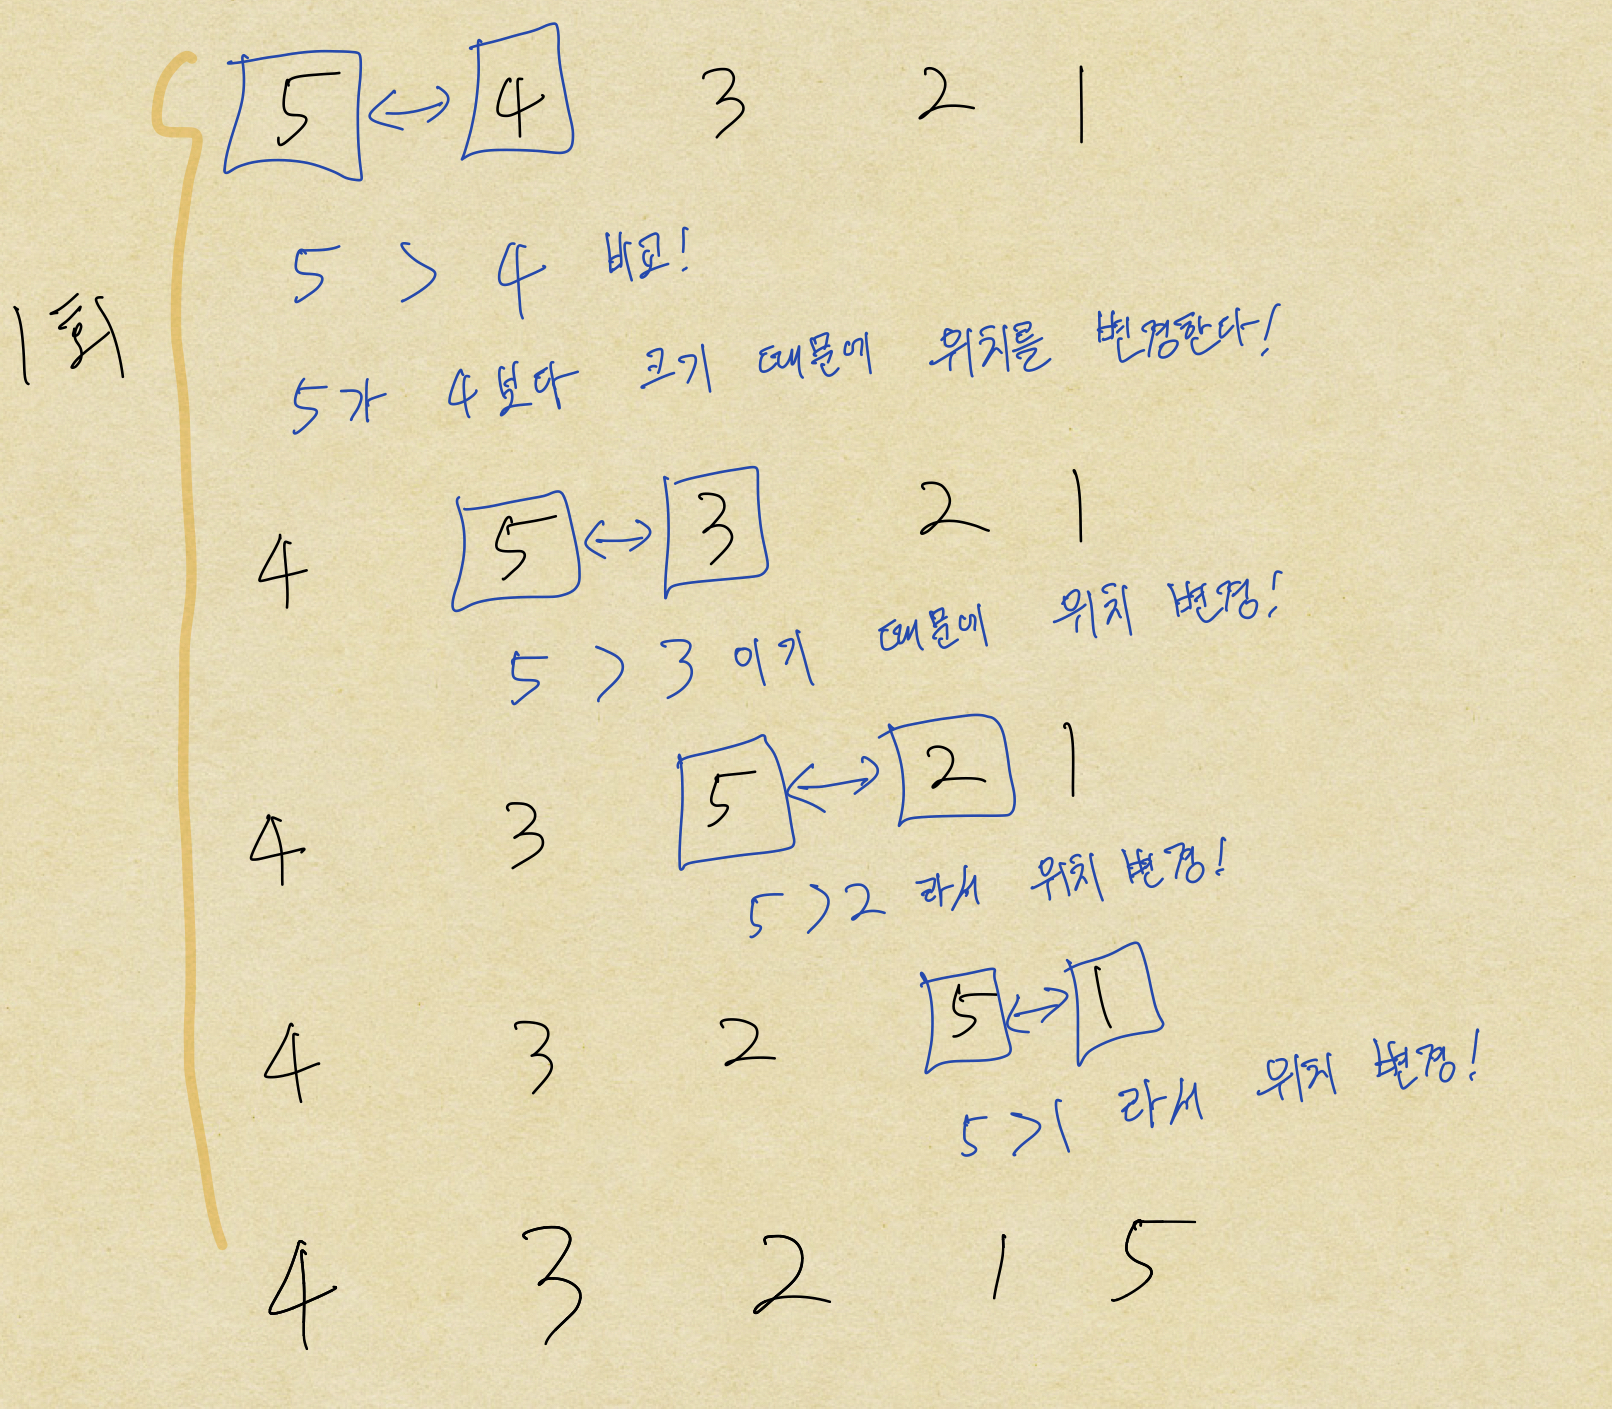 5 ↔ 4 3 2 1
5 > 4 비교!
1회
5가 4보다 크기 때문에 위치를 변경한다!
4 5 ↔ 3 2 1
5 > 3 이기 때문에 위치 변경!
4 3 5 ↔ 2 1
5 > 2 라서 위치 변경!
4 3 2 5 ↔ 1
5 > 1 라서 위치 변경!
4 3 2 1 5